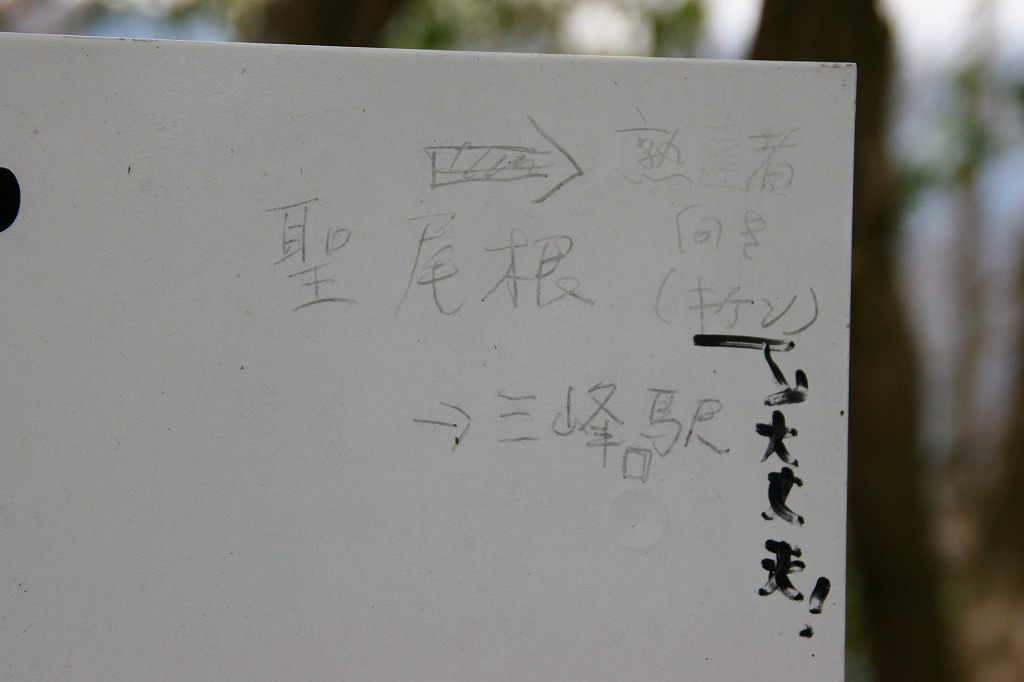 ⇨ 熟達者
向き
聖尾根
(キケン)
→ 三峰口駅
大丈夫!